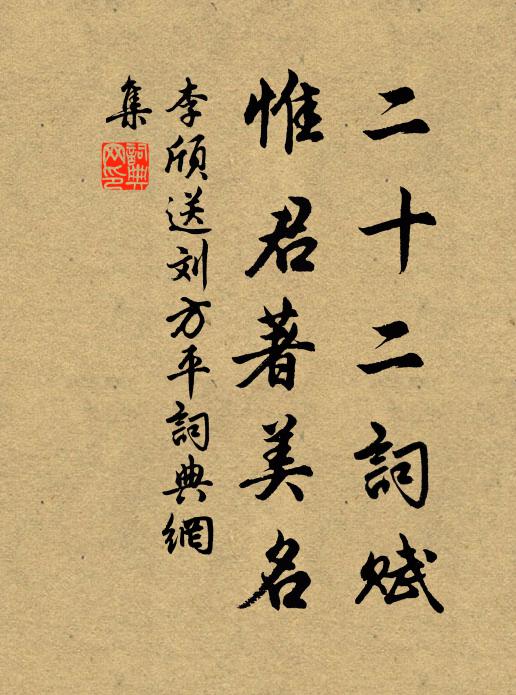 二十二詞賦
惟君著美名
李頎送刘方平詞典網
集
詞典
网印